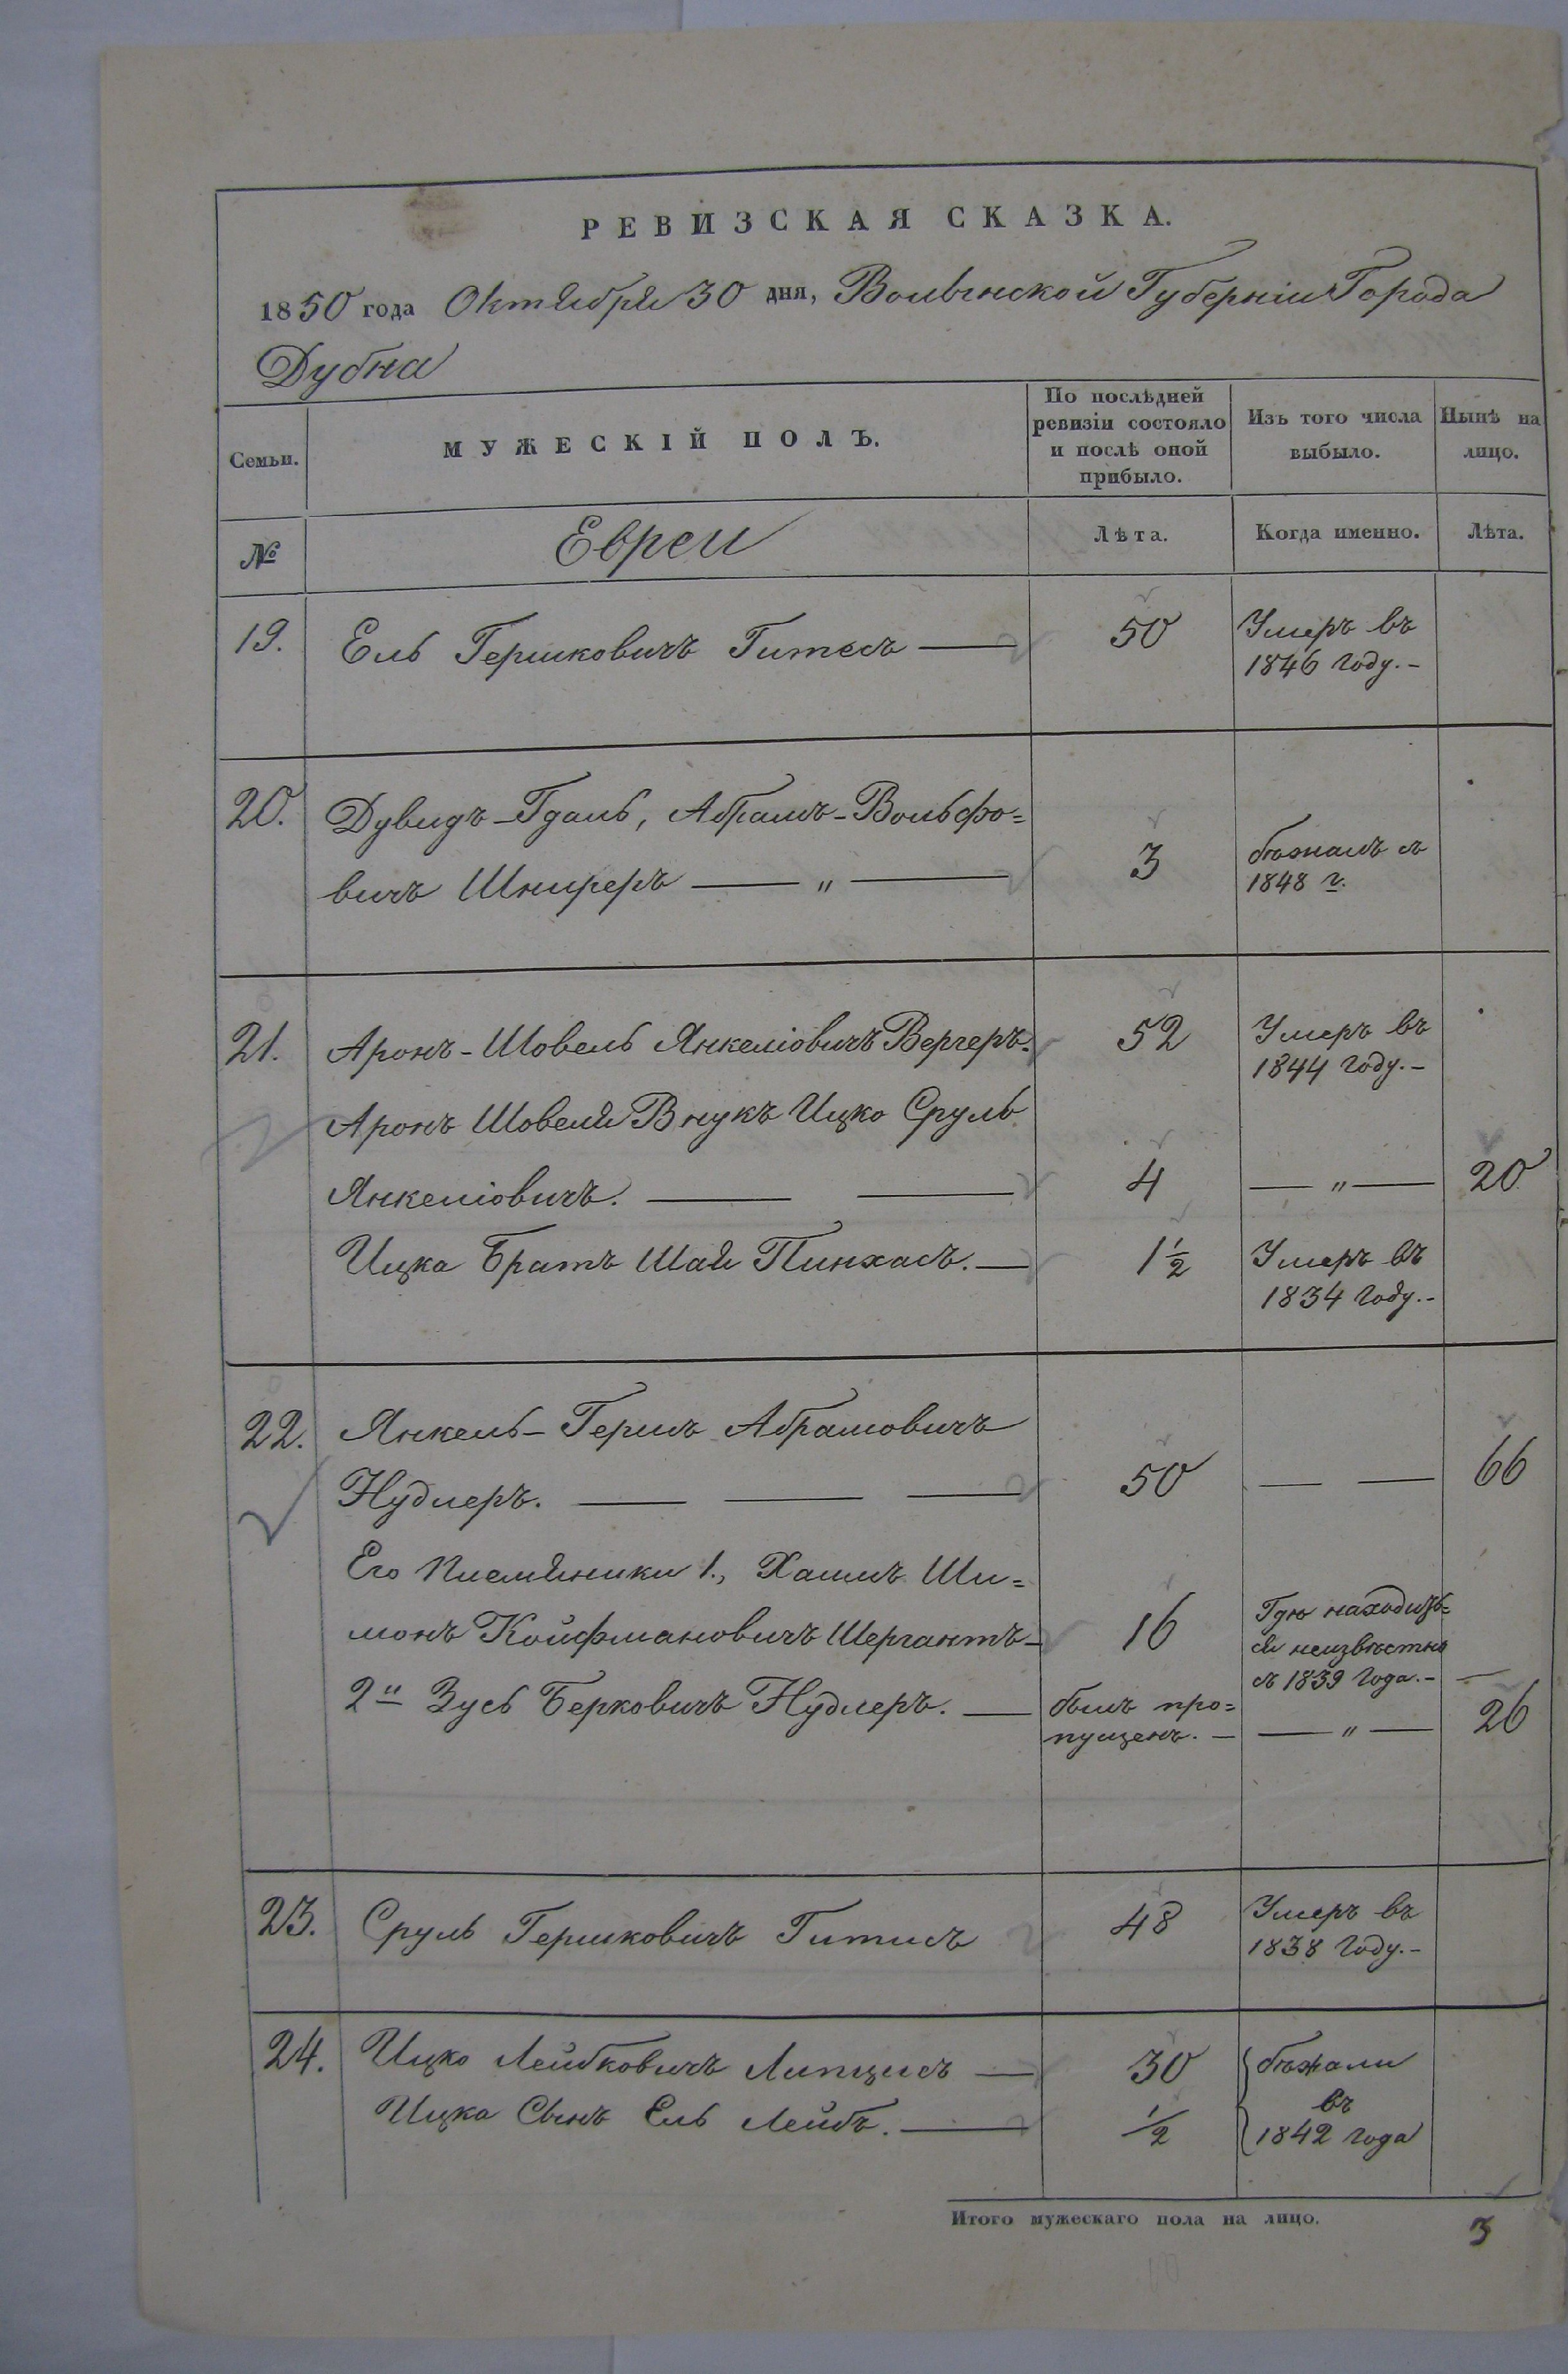 РЕВИЗСКАЯ СКАЗКА.
1850 года Октября 30 дня, Волынской Губерніи Города
Дубна
Семьи.
МУЖЕСКІЙ ПОЛЪ.
По послѣдней
ревизіи состояло
и послѣ оной
прибыло.
Изъ того числа
выбыло.
Нынѣ на
лицо.
№
Евреи
Лѣта.
Когда именно.
Лѣта.
19. Ель Гершковичъ Гитесъ — 50 Умеръ въ
1846 году.-
20. Дувидъ-Гдаль, Абрамъ-Вольфо=
вичъ Шниреръ — „ — 3 бѣжалъ съ
1848 г.
21. Аронъ-Шовель Янкеліовичъ Вергеръ. 52 Умеръ въ
1844 году.-
Аронъ Шовеля Внукъ Ицко Сруль
Янкеліовичъ. — — 4 — „ — 20
Ицка Братъ Шая Пинхасъ. — 1½ Умеръ въ
1834 году.-
22. Янкель-Гершъ Абрамовичъ
Нудлеръ. — — — 50 — — 66
Его Племянники 1., Хаимъ Ши=
монъ Койфмановичъ Шергантъ — 16 Гдѣ находит=
ся неизвѣстно
съ 1839 года.-
2й Зусь Берковичъ Нудлеръ. — былъ про=
пущенъ. — — „ — 26
23. Сруль Гершковичъ Гитисъ 48 Умеръ въ
1838 году.-
24. Ицко Лейбковичъ Липцисъ — 30 бѣжали
въ
Ицка Сынъ Ель Лейбъ. — ½ 1842 года
Итого мужескаго пола на лицо. 3